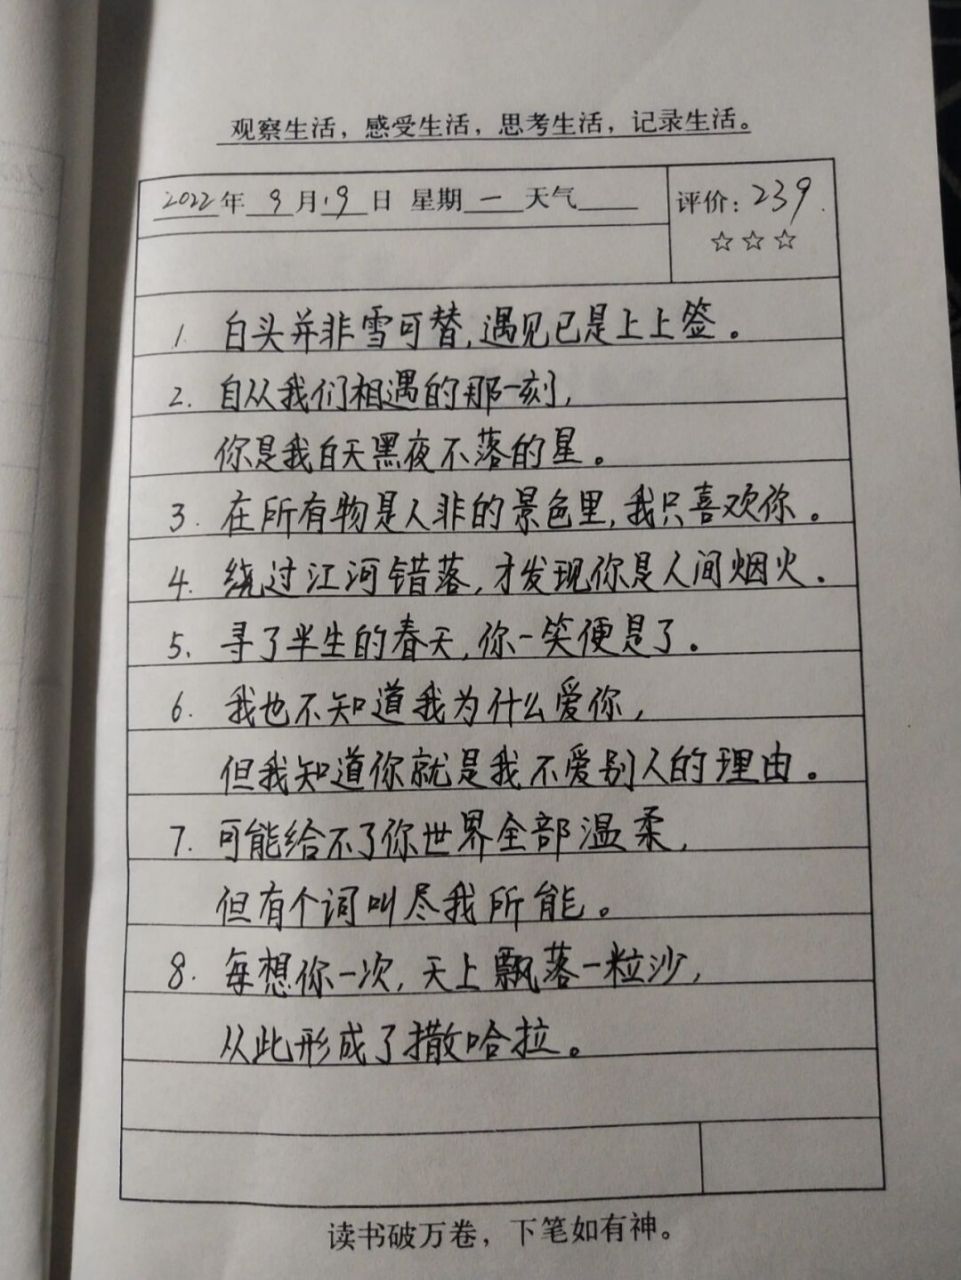 观察生活，感受生活，思考生活，记录生活。
2022年 9月19日 星期一 天气 评价：239
☆☆☆
1. 白头并非雪可替,遇见已是上上签。
2. 自从我们相遇的那一刻,
你是我白天黑夜不落的星。
3. 在所有物是人非的景色里,我只喜欢你。
4. 绕过江河错落,才发现你是人间烟火.
5. 寻了半生的春天,你一笑便是了。
6. 我也不知道我为什么爱你,
但我知道你就是我不爱别人的理由。
7. 可能给不了你世界全部温柔,
但有个词叫尽我所能。
8. 每想你一次,天上飘落一粒沙,
从此形成了撒哈拉。
读书破万卷，下笔如有神。